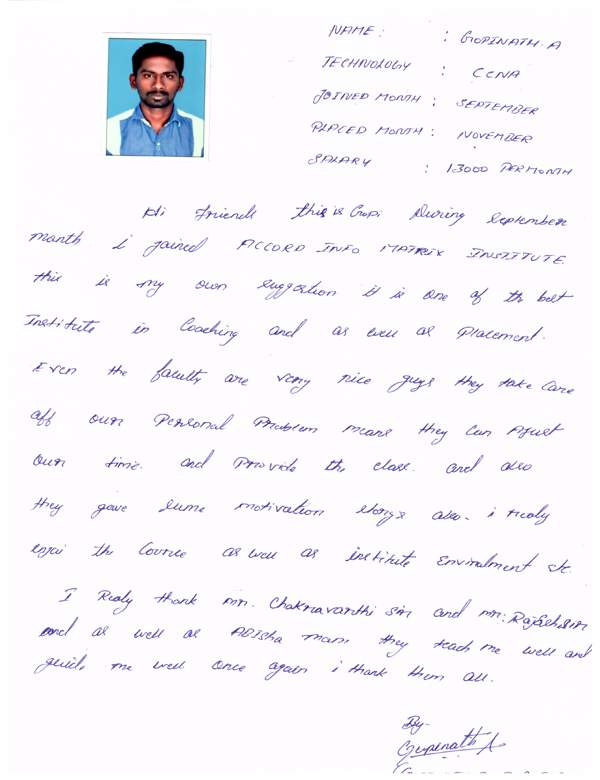 NAME : : GOPINATH.A
TECHNOLOGY : CCNA
JOINED MONTH : SEPTEMBER
PLACED MONTH : NOVEMBER
SALARY : 13000 PER MONTH
Hi friends this is Gopi During september
month i joined ACCORD INFO MATRIX INSTITUTE
this is my own suggestion it is one of th best
Institute in Coaching and as well as Placement.
Even the faculty are very nice guys they take care
off our Personal Problem means they can Ajust
our time. and Provide the class. and also
they gave sume motivation storys also. i realy
enjoi the Cource as well as institute Envirolment etc.
I Realy thank mr. Chakravarthi sir and mr: Rajesh sir
and as well as ABISha mam they teach me well and
guide me well once again i thank them all.
By
Gopinath A